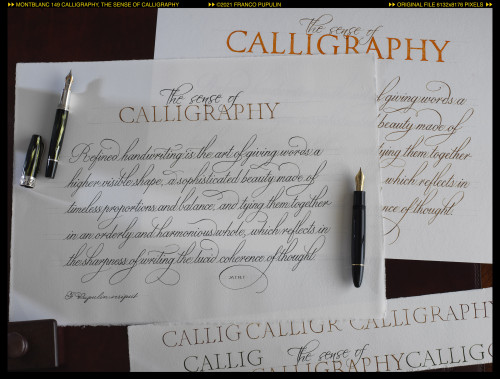 MONTBLANC 149 CALLIGRAPHY, THE SENSE OF CALLIGRAPHY
©2021 FRANCO PUPULIN
ORIGINAL FILE 6132x8176 PIXELS
The sense of
CALLIGRAPHY
The sense of
CALLIGRAPHY
Refined handwriting is the art of giving words a
higher visible shape, a sophisticated beauty made of
timeless proportions and balance, and tying them together
in an orderly and harmonious whole, which reflects in
the sharpness of writing the lucid coherence of thought.
F. Pupulin scripsit
giving words a
beauty made of
tying them together
which reflects in
coherence of thought.
CALLIG CALLIGR CALLIGRAPHY
CALLIG The sense of CALLIGRAPHY CALLIGO